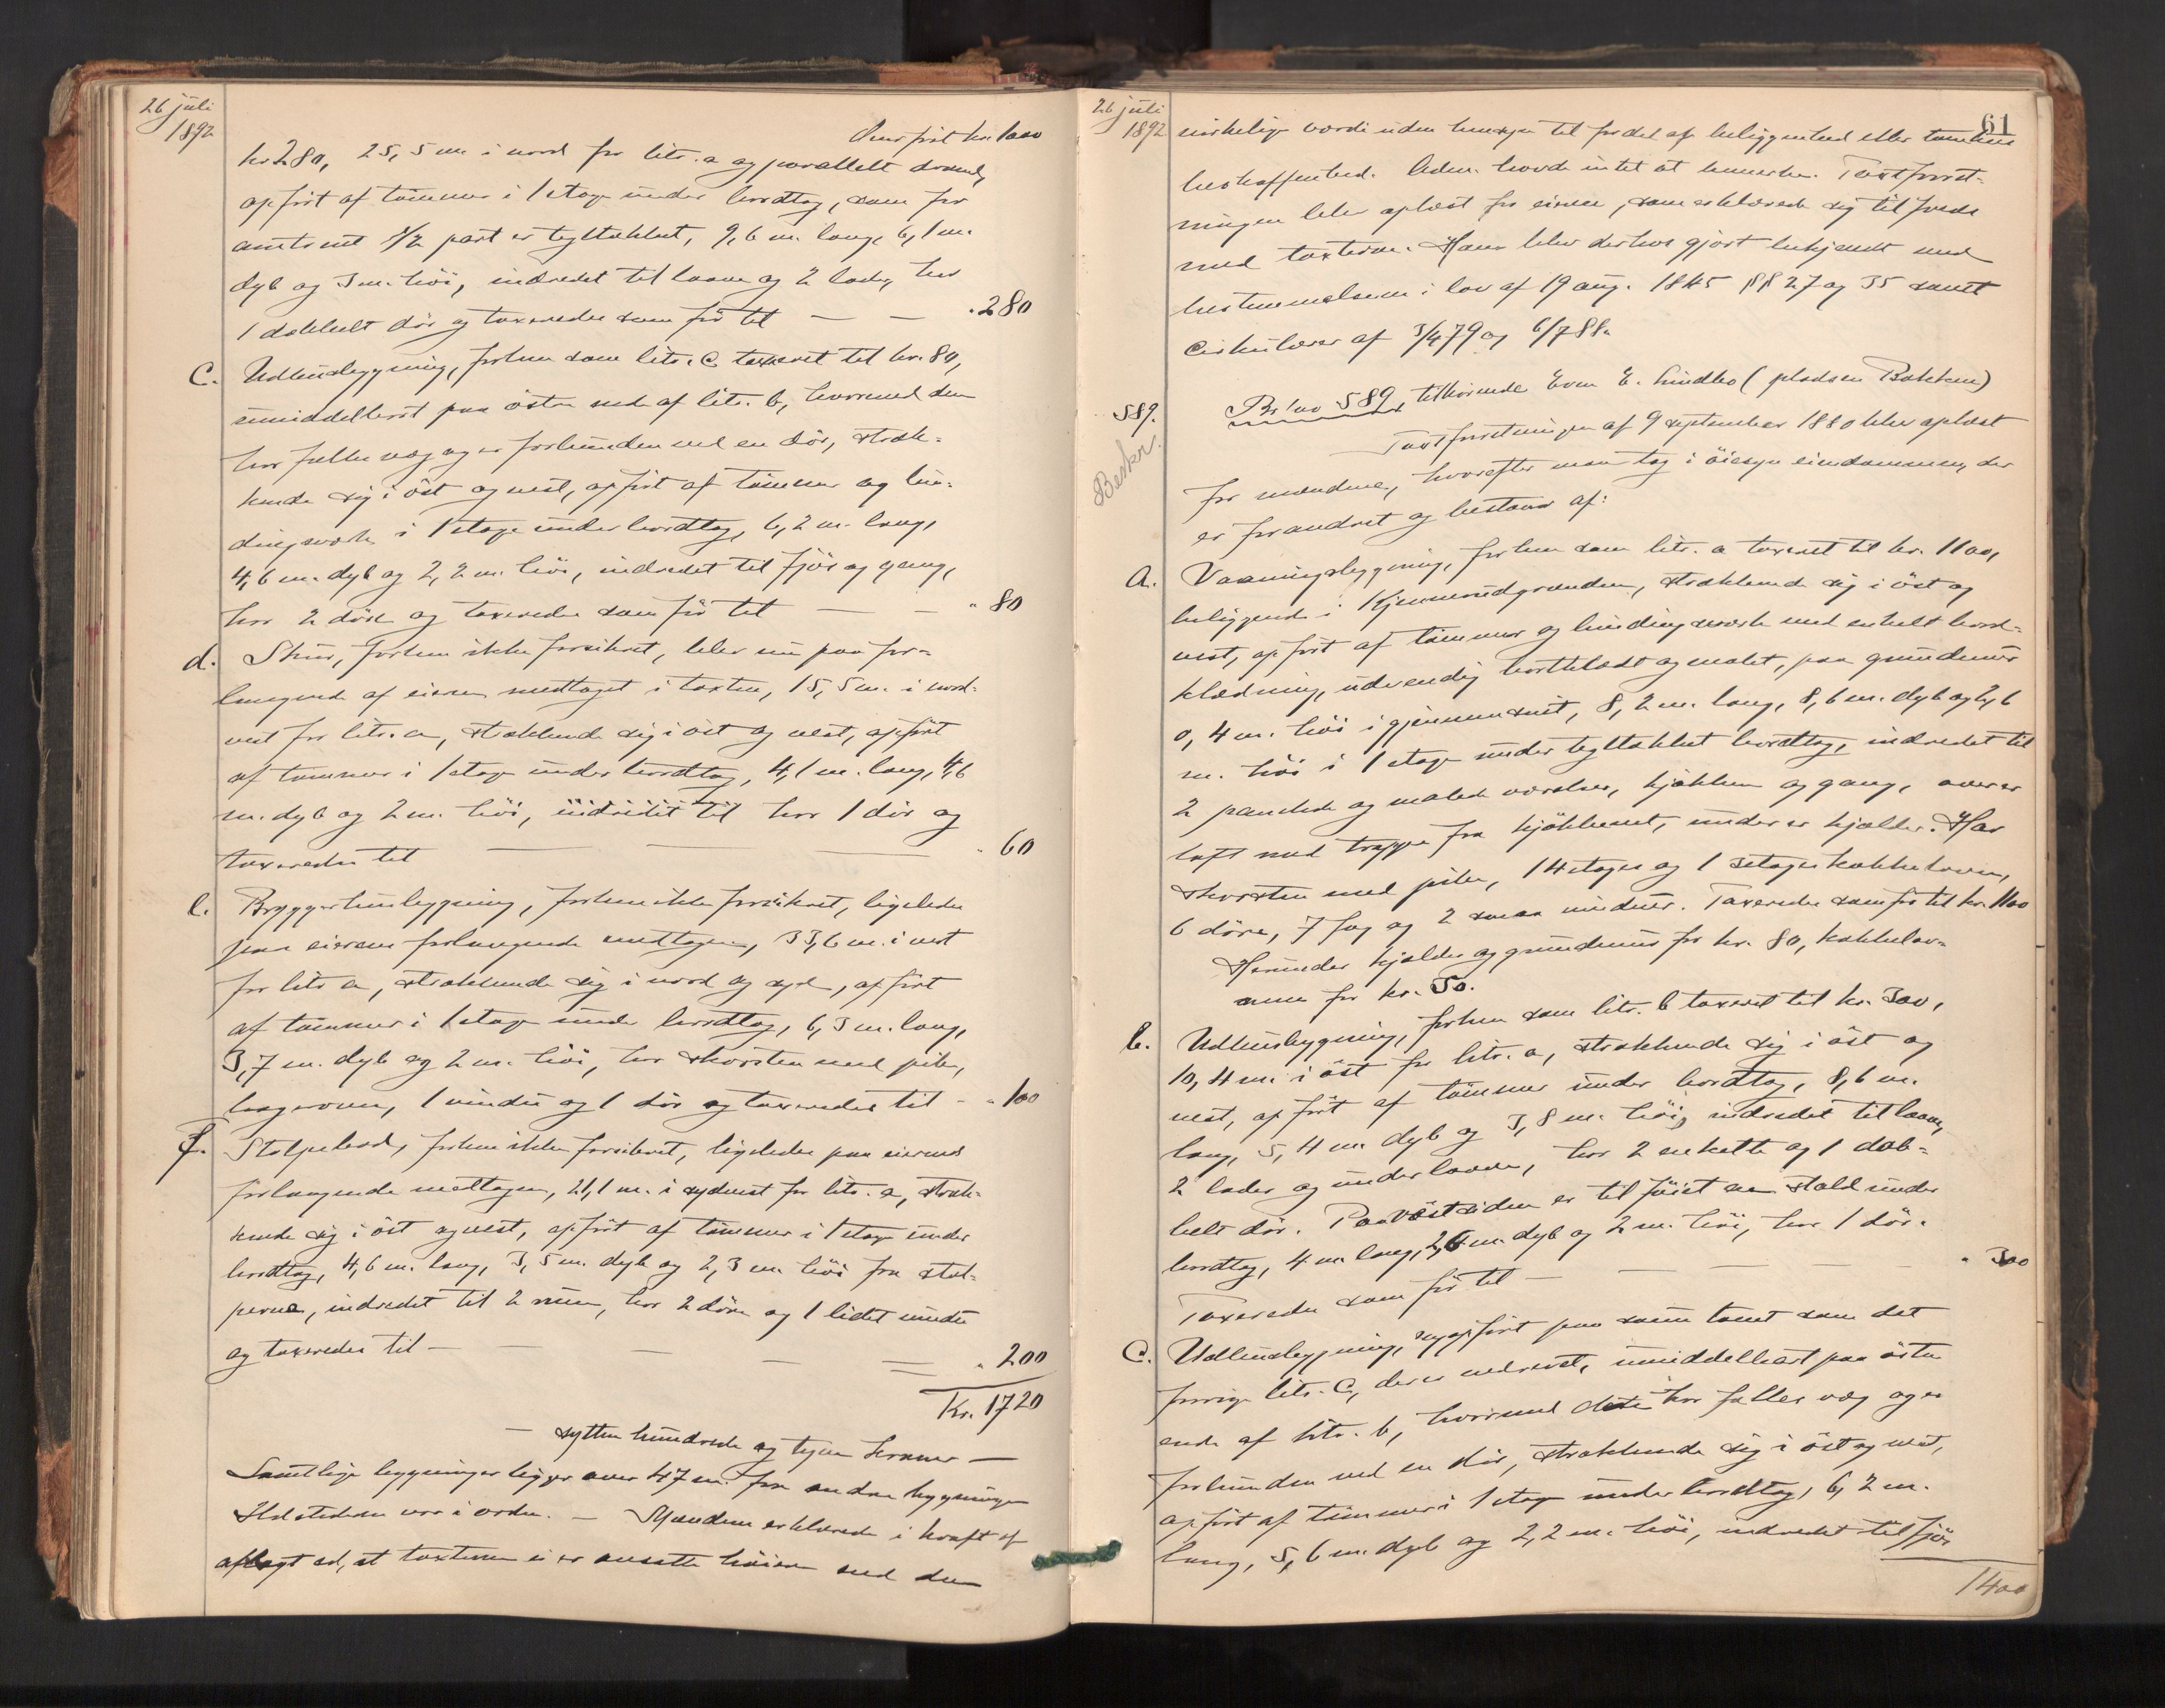 26 juli
1892
Overført kr. 1000
kr. 280, 25,5 m. i nord for litr. a og parallelt dermed,
opført af tømmer i 1 etage under bordtag, som for
omtrent 1/2 part er tegltækket, 9,6 m. lang, 6,1 m.
dyb og 3 m. høi, indredet til laave og 2 lader, har
1 dobbelt dør og taxeredes som før til — — " 280
C. Udhusbygning, forhen som litr. C taxeret til kr. 80,
umiddelbart paa østre ende af litr. b, hvormed den
har fælles væg og er forbunden ved en dør, stræk-
kende sig i øst og vest, opført af tømmer og bin-
dingsværk i 1 etage under bordtag, 6,2 m. lang,
4,6 m. dyb og 2,2 m. høi, indredet til fjøs og gang,
har 2 døre og taxeredes som før til — — " 80
d. Skur, forhen ikke forsikret, blev nu paa for-
langende af eieren medtaget i taxten, 15,5 m. i nord-
vest for litr. a, strækkende sig i øst og vest, opført
af tømmer i 1 etage under bordtag, 4,1 m. lang, 4,6
m. dyb og 2 m. høi, indredet til har 1 dør og
taxeredes til — — — " 60
e. Bryggerhusbygning, forhen ikke forsikret, ligeledes
paa eierens forlangende medtagen, 33,6 m. i vest
for litr. a, strækkende sig i nord og syd, opført
af tømmer i 1 etage under bordtag, 6,3 m. lang,
3,7 m. dyb og 2 m. høi, har skorsten med pibe,
bagerovn, 1 vindu og 1 dør og taxeredes til - " 100
f. Stolpebod, forhen ikke forsikret, ligeledes paa eierens
forlangende medtagen, 21,1 m. i sydvest for litr. a, stræk-
kende sig i øst og vest, opført af tømmer i 1 etage under
bordtag, 4,6 m. lang, 3,5 m. dyb og 2,3 m. høi fra stol-
perne, indredet til 2 rum, har 2 døre og 1 lidet vindu
og taxeredes til — — — — " 200
Kr. 1720
— sytten hundrede og tyve kroner —
Samtlige bygninger ligger over 47 m. fra andre bygninger
Ildstederne var i orden. — Mændene erklærede i kraft af
aflagt ed, at taxterne ei er ansatte høiere end den
26 juli
1892
61
virkelige værdi uden hensyn til fordel af beliggenhed eller tomtens
beskaffenhed. Ellers havde intet at bemerke. Taxtforret-
ningen blev oplæst for eieren, som erklærede sig tilfreds
med taxterne. Han blev derhos gjort bekjendt med
bestemmelserne i lov af 19 aug. 1845 §§ 27 og 35 samt
cirkulærer af 3/4 79 og 6/7 88.
589. Br. no 589, tilhørende Even E. Lindbo (pladsen Bakken)
Beskr.
Taxtforretningen af 9 september 1880 blev oplæst
for mændene, hvorefter man tog i øiesyn eiendommen, der
er forandret og bestaar af:
a. Vaaningsbygning, forhen som litr. a taxeret til kr. 1100,
beliggende i Kjennerudgrænden, strækkende sig i øst og
vest, opført af tømmer og bindingsværk med enkelt bord-
klædning, udvendig bordklædt og malet, paa grundmur
0,4 m. høi i gjennemsnit, 8,2 m. lang, 8,6 m. dyb og 2,6
m. høi i 1 etage under tegltækket bordtag, indredet til
2 panelede og malede værelser, kjøkken og gang, over er
loft med trappe fra kjøkkenet, under er kjælder. Har
skorsten med pibe, 1 4etages og 1 3etages kakkelovn,
6 døre, 7 fag og 2 smaa vinduer. Taxeredes som før til kr. 1100
Herunder kjælder og grundmur for kr. 80, kakkelov-
nene for kr. 50.
b. Udhusbygning, forhen som litr. b taxeret til kr. 300,
10,4 m. i øst for litr. a, strækkende sig i øst og
vest, opført af tømmer under bordtag, 8,6 m.
lang, 5,4 m. dyb og 3,8 m. høi, indredet til laave,
2 lader og underlaave, har 2 enkelte og 1 dob-
belt dør. Paa vestsiden er tilføiet en stald under
bordtag, 4 m. lang, 2,6 m. dyb og 2 m. høi, har 1 dør.
Taxeredes som før til — — — — " 300
C. Udhusbygning, nyopført paa samme tomt som det
forrige litr. C, der er nedrevet, umiddelbart paa østre
ende af litr. b, hvormed dette har fælles væg og er
forbunden ved en dør, strækkende sig i øst og vest,
opført af tømmer i 1 etage under bordtag, 6,2 m.
lang, 5,6 m. dyb og 2,2 m. høi, indredet til fjøs
1400